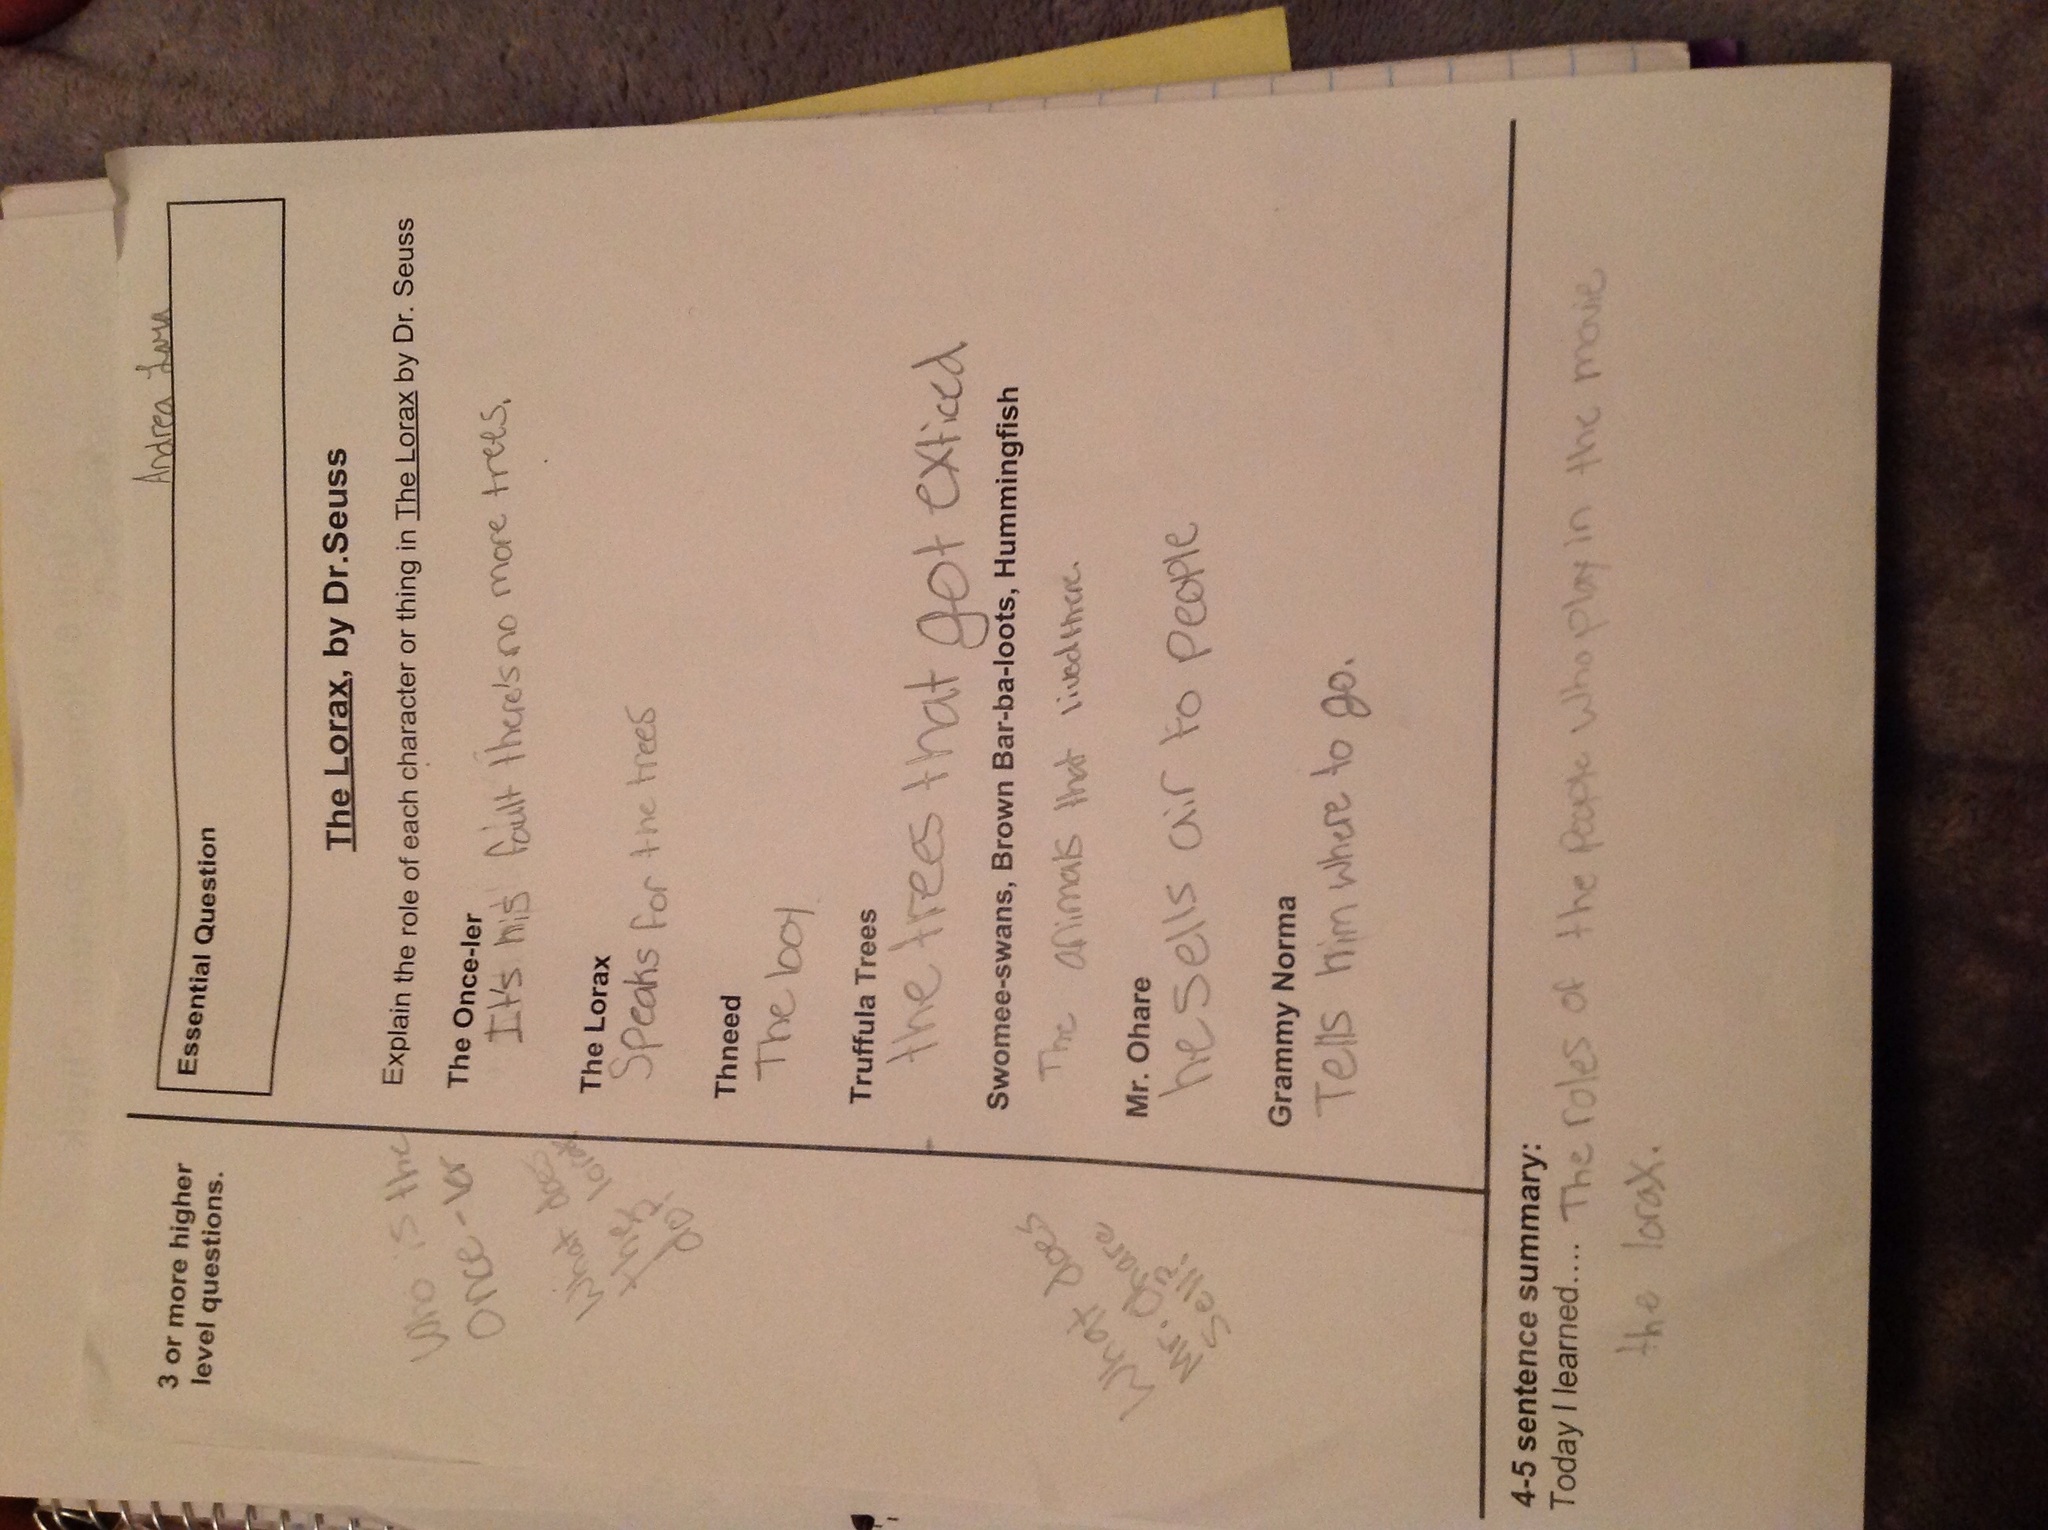 Andrea Lara
3 or more higher
level questions.
Essential Question
The Lorax, by Dr.Seuss
Explain the role of each character or thing in The Lorax by Dr. Seuss
Who is the
Once-ler
The Once-ler
It's his fault there's no more trees.
What does
the lorax
do?
The Lorax
Speaks for the trees
Thneed
The boy
Truffula Trees
the trees that got exticed
Swomee-swans, Brown Bar-ba-loots, Hummingfish
The animals that lived there.
What does
Mr. Ohare
sell?
Mr. Ohare
he sells air to people
Grammy Norma
Tells him where to go.
4-5 sentence summary:
Today I learned.... The roles of the people who play in the movie
the lorax.